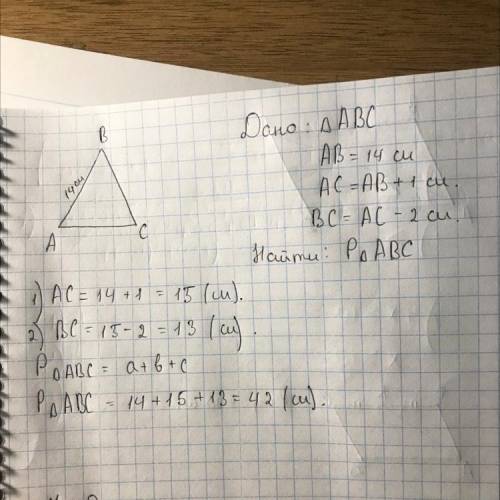 B
14 см
A
C
Дано: △ABC
AB = 14 см
AC = AB + 1 см.
BC = AC - 2 см.
Найти: P△ABC
1) AC = 14 + 1 = 15 (см).
2) BC = 15 - 2 = 13 (см).
P△ABC = a + b + c
P△ABC = 14 + 15 + 13 = 42 (см).